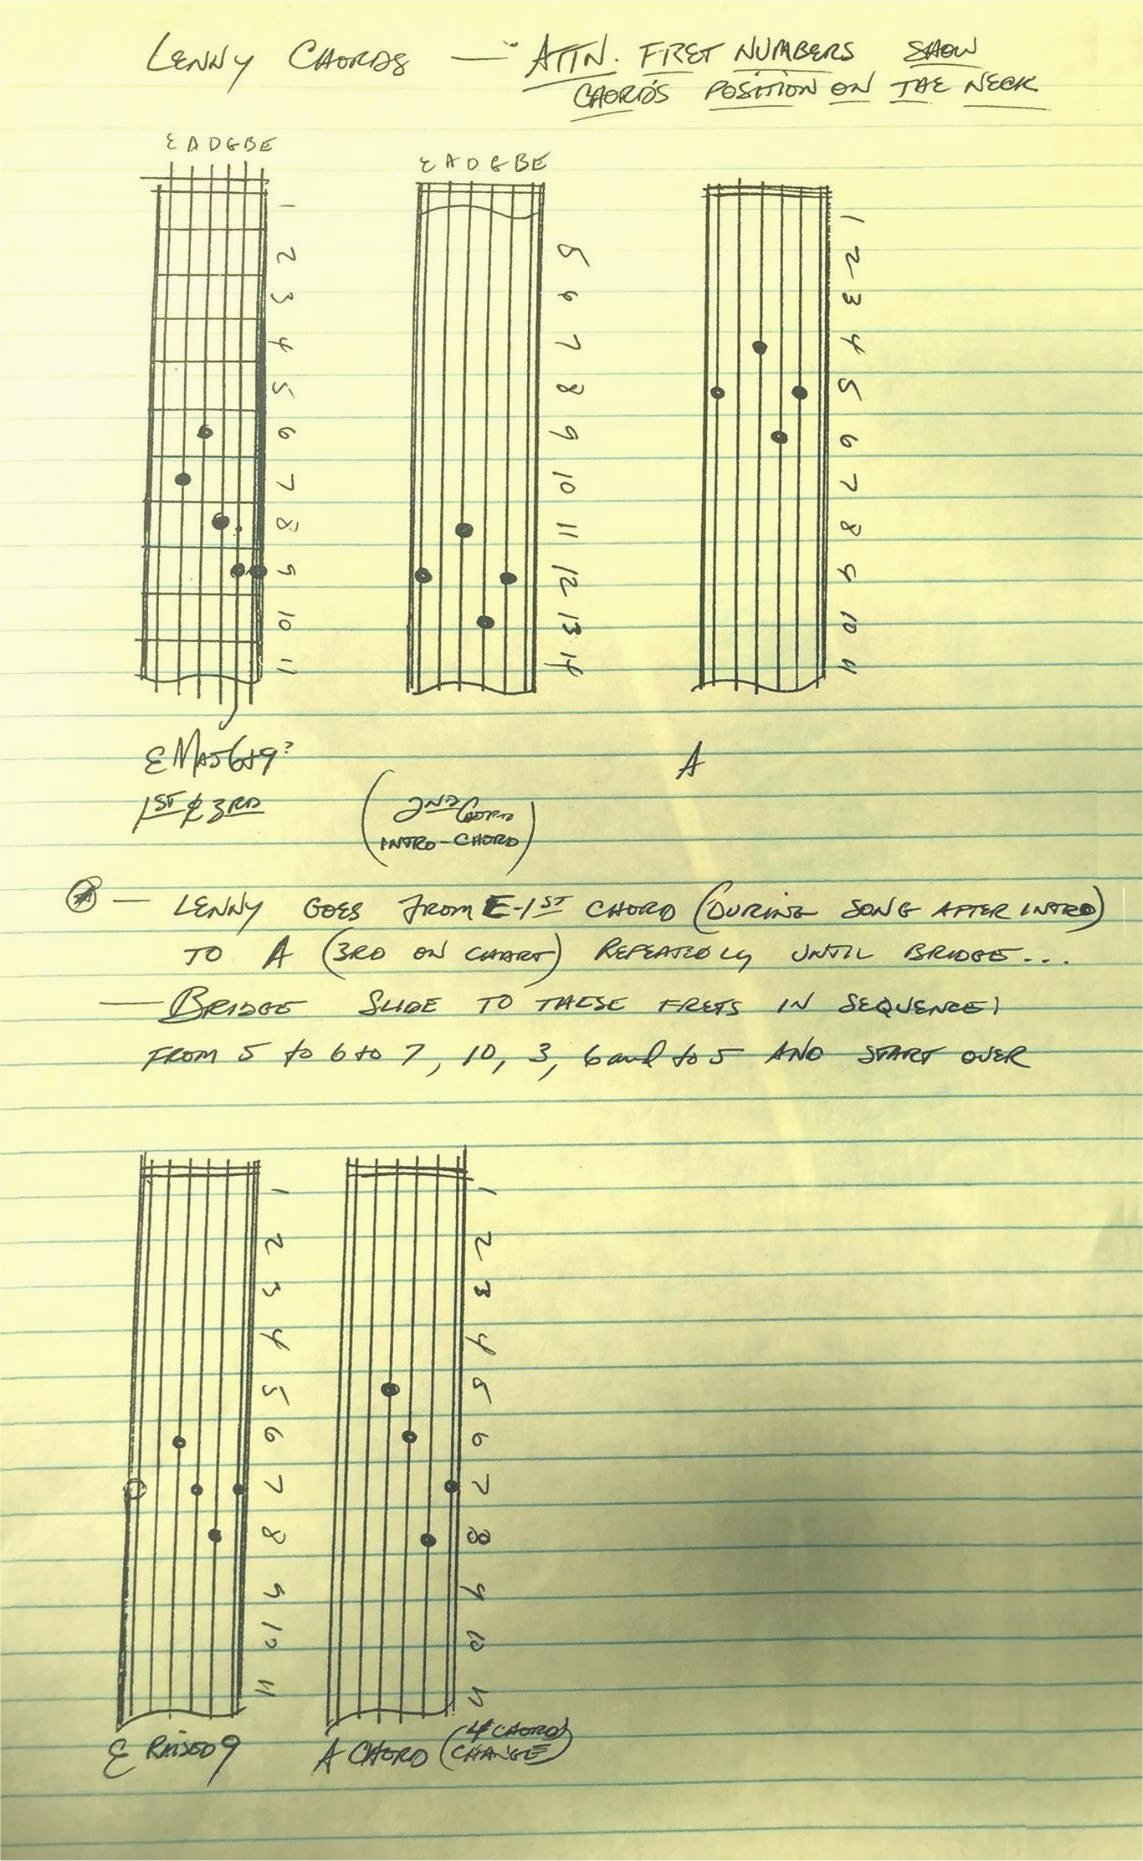 LENNY CHORDS — ATTN. FRET NUMBERS SHOW
CHORDS POSITION ON THE NECK
E A D G B E
E A D G B E
1
2
3
4
5
6
7
8
9
10
11
5
6
7
8
9
10
11
12
13
14
1
2
3
4
5
6
7
8
9
10
11
E MAJ 6+9?
1ST & 3RD
(2ND CHORD
INTRO-CHORD)
A
* — LENNY GOES FROM E-1ST CHORD (DURING SONG AFTER INTRO)
TO A (3RD ON CHART) REPEATEDLY UNTIL BRIDGE...
— BRIDGE SLIDE TO THESE FRETS IN SEQUENCE;
FROM 5 to 6 to 7, 10, 3, 6 and to 5 AND START OVER
1
2
3
4
5
6
7
8
9
10
11
1
2
3
4
5
6
7
8
9
10
11
E RAISED 9
A CHORD (4 CHORD CHANGE)